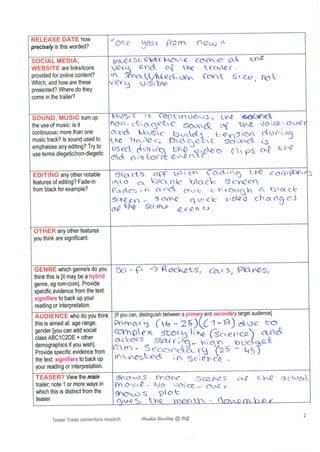 RELEASE DATE how
precisely is this worded?
"one year from now"
SOCIAL MEDIA,
WEBSITE are links/icons
provided for online content?
Which, and how are these
presented? Where do they
come in the trailer?
interstellarmovie.com at the
very end of the trailer.
in small/medium font size, not
very visible
SOUND, MUSIC sum up
the use of music: is it
continuous; more than one
music track? Is sound used to
emphasise any editing? Try to
use terms diegetic/non-diegetic
Music is continuous, the sound
non-diagetic sound of the voice-over
and music builds tension during
the trailer. Diagetic sound is
used during the video clips of the
old historic events.
EDITING any other notable
features of editing? Fade-in
from black for example?
Starts off with fading the companys
into a blank black screen
Fades in and out through a black
screen - some quick video changes
of the same event.
OTHER any other features
you think are significant:
GENRE which genre/s do you
think this is [it may be a hybrid
genre, eg rom-com]. Provide
specific evidence from the text:
signifiers to back up your
reading or interpretation.
Sci-fi → Rockets, cars, planes,
AUDIENCE who do you think
this is aimed at: age range,
gender [you can add social
class ABC1C2DE + other
demographics if you wish].
Provide specific evidence from
the text: signifiers to back up
your reading or interpretation.
[If you can, distinguish between a primary and secondary target audience]
Primary (16-25) (
) due to
complex story line (science) and
actors starring - high budget
film. Secondary (25-45)
intrested in science.
TEASER? View the main
trailer; note 1 or more ways in
which this is distinct from the
teaser
shows more scenes of the actual
movie - No voice-over
shows plot
gives the month - november
Teaser Trailer conventions research
Media Studies @ StG
2